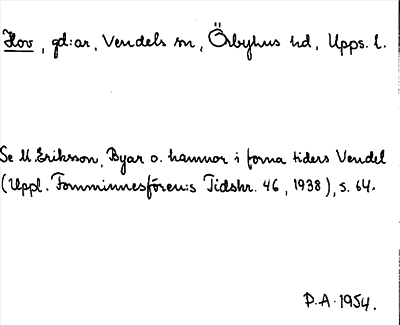 Hov, gd:ar, Vendels sn, Örbyhus hd, Upps. l.
Se M Erikson, Byar o. hamnor i forna tiders Vendel
(Uppl. Fornminnesfören:s Tidskr. 46, 1938), s. 64.
P.A. 1954.